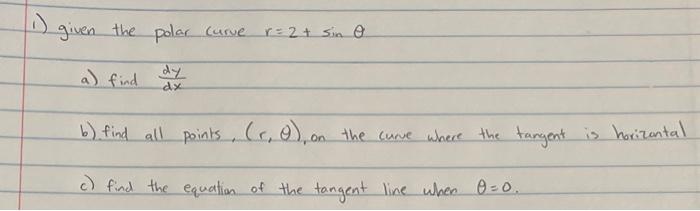 1) given the polar curve r = 2 + sin θ
a) find dy/dx
b) find all points, (r, θ), on the curve where the tangent is horizontal
c) find the equation of the tangent line when θ=0.